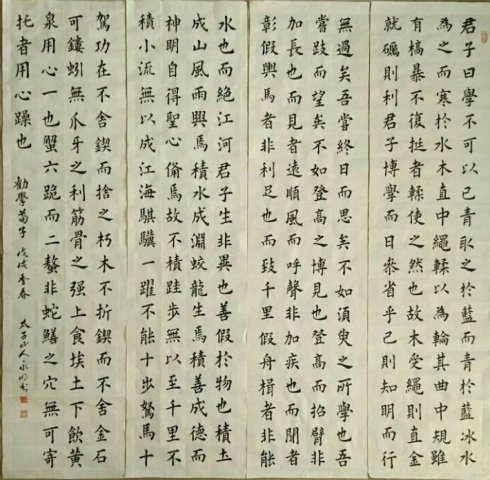 君子曰學不可以已青取之於藍而青於藍冰水
為之而寒於水木直中繩輮以為輪其曲中規雖
有槁暴不復挺者輮使之然也故木受繩則直金
就礪則利君子博學而日參省乎己則知明而行
無過矣吾嘗終日而思矣不如須臾之所學也吾
嘗跂而望矣不如登高之博見也登高而招臂非
加長也而見者遠順風而呼聲非加疾也而聞者
彰假輿馬者非利足也而致千里假舟楫者非能
水也而絕江河君子生非異也善假於物也積土
成山風雨興焉積水成淵蛟龍生焉積善成德而
神明自得聖心備焉故不積跬步無以至千里不
積小流無以成江海騏驥一躍不能十步駑馬十
駕功在不舍鍥而捨之朽木不折鍥而不舍金石
可鏤蚓無爪牙之利筋骨之强上食埃土下飲黃
泉用心一也蟹六跪而二螯非蛇鱔之穴無可寄
托者用心躁也
勸學荀子 戊戌 春 太子山人永明